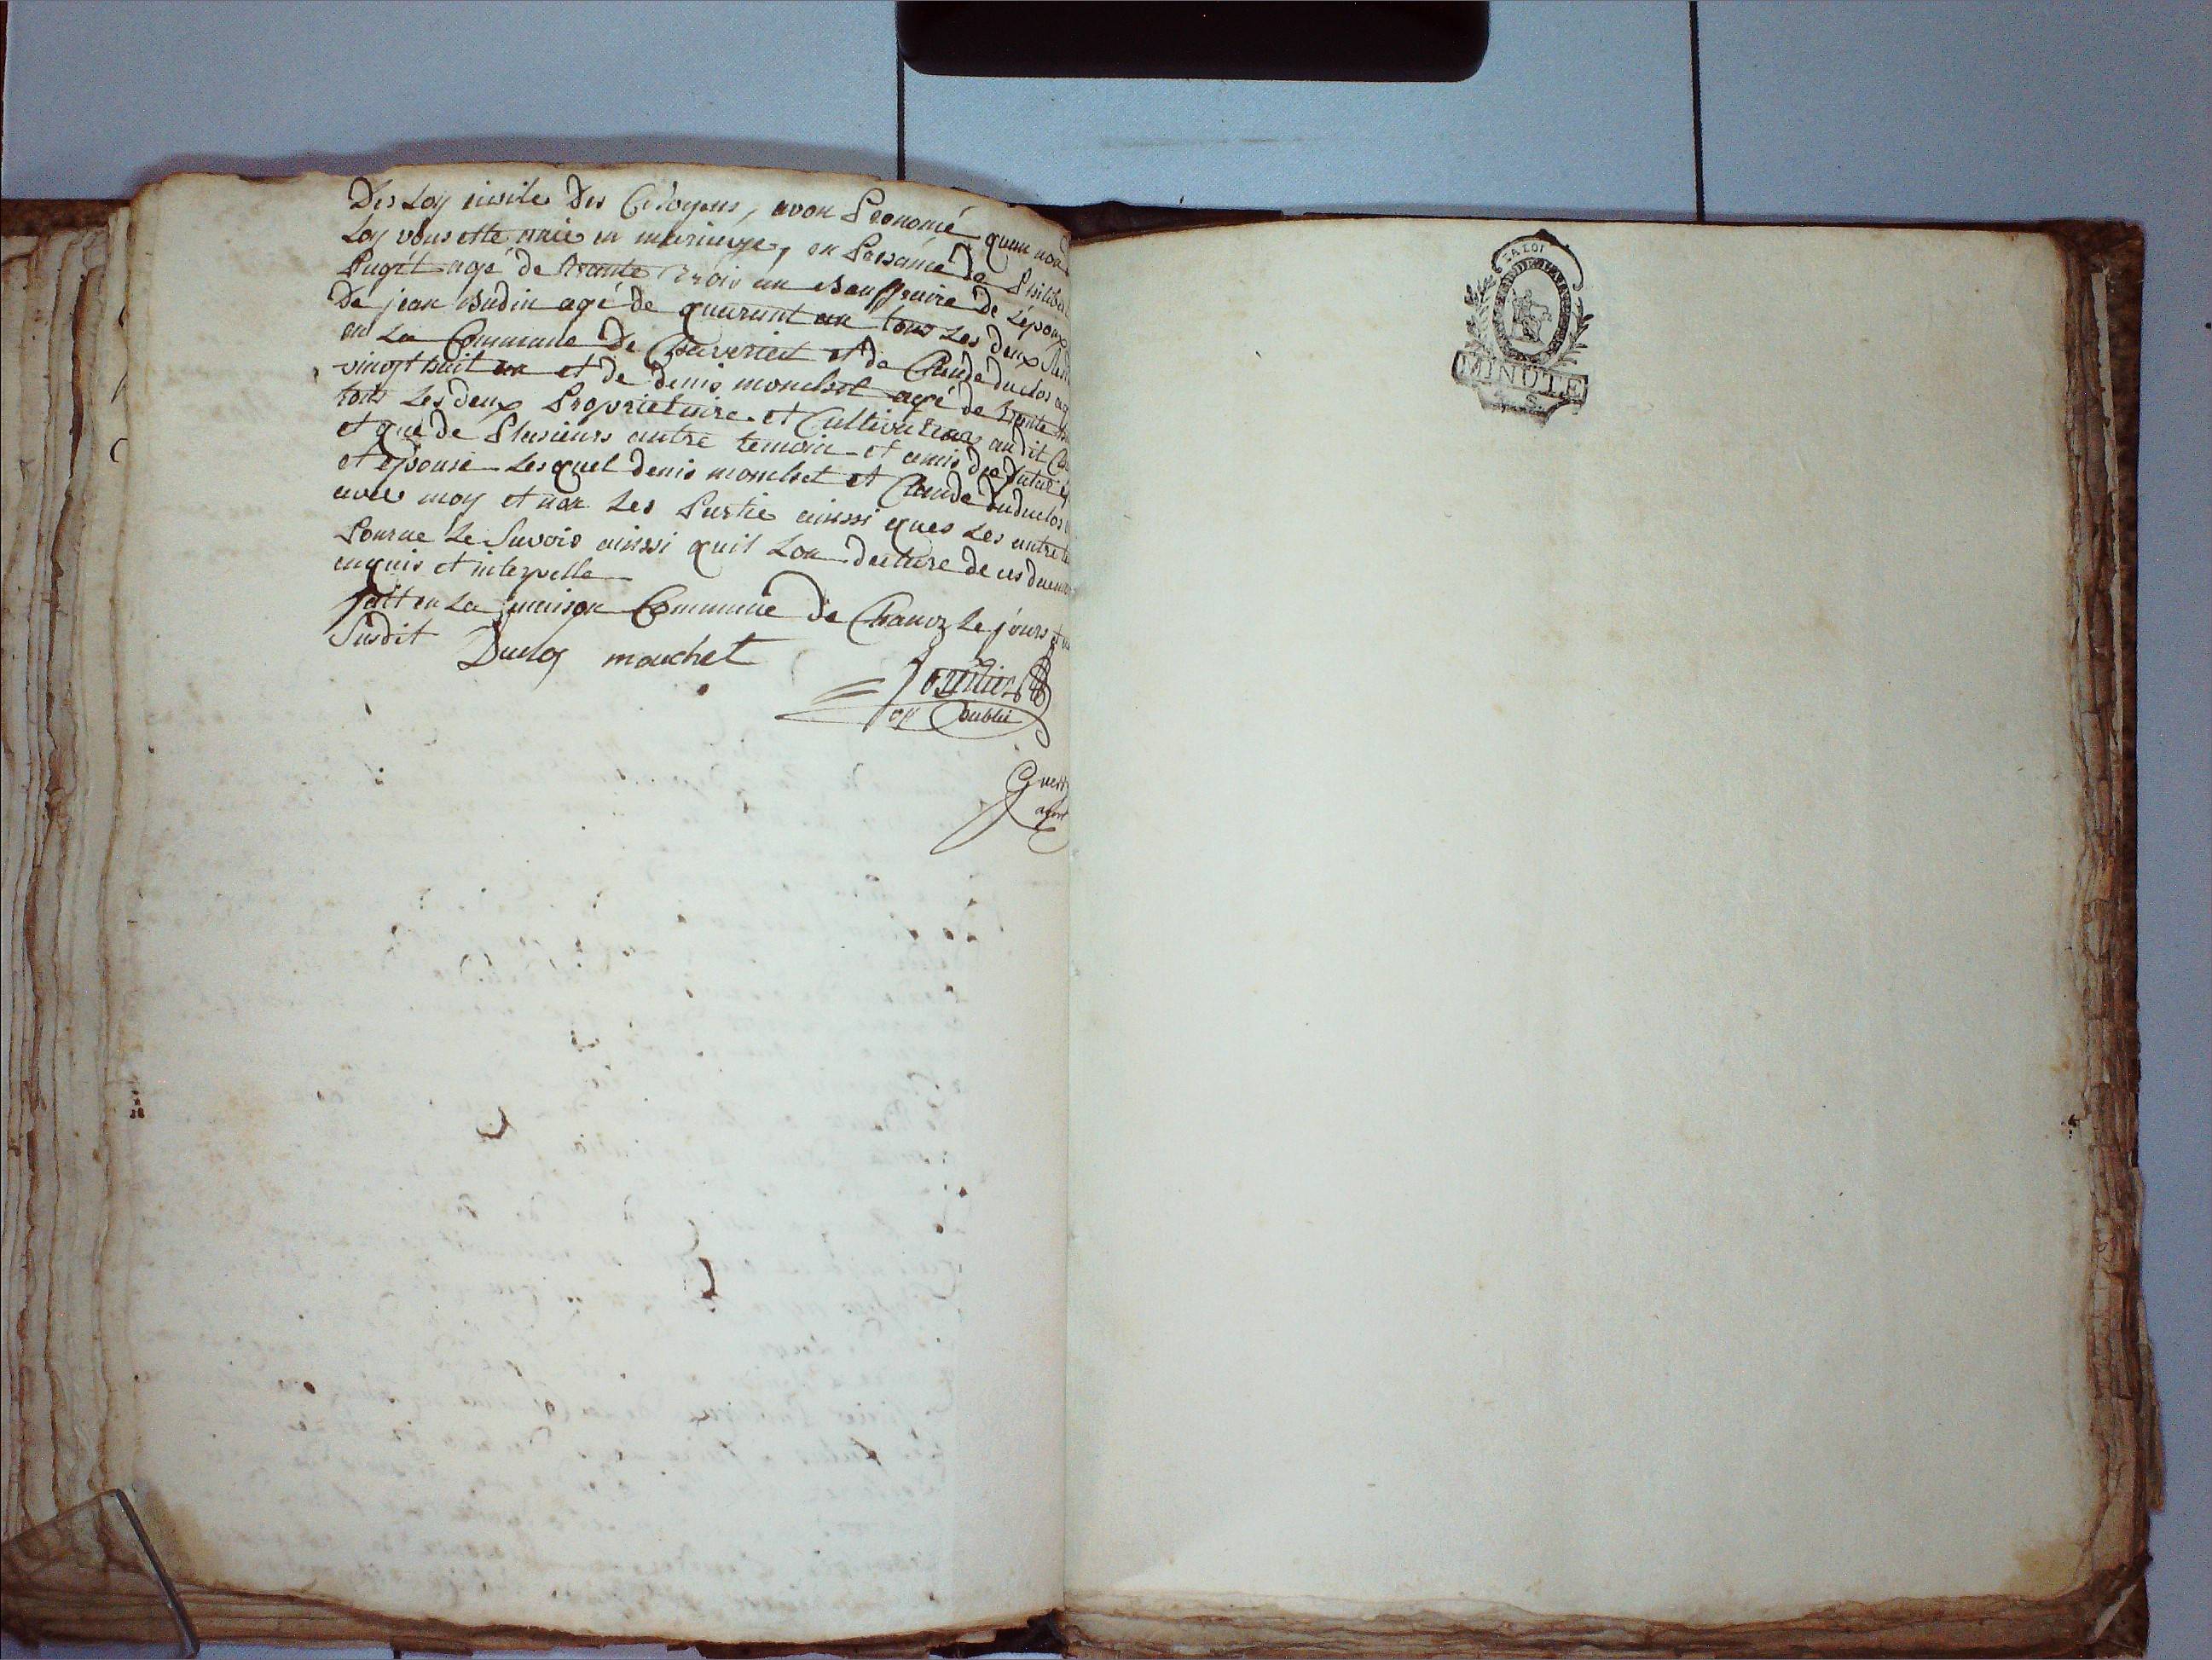 Des Loy civile Des Citoyens, avon Prononcé quau nom
Loy vous ette unie en mariage, en Presance de Philibert
Pugét agé de trante trois an Bauffraire de Lépoux
De jean Budin agé de quarant an tous Les deux
en La Commune De Chaveriat et de Claude duclos agé
vingt huit an et de denis monchet agé de trente
tous Les deux Proprietaire et Cultivateur audit
et que de Plusieurs autre temoin et amis du futur
et epouse Lesquel denis monchet et Claude duduclos
avec moy et non Les Partie ainssi ques Les autre
Pour ne Le Savoir ainssi quil Lon declare de ces
enquis et interpelle
fait en La maison Commune de Chanoz Le jours et
Susdit
Duclos mouchet
off Public
LA LOI
MINUTE